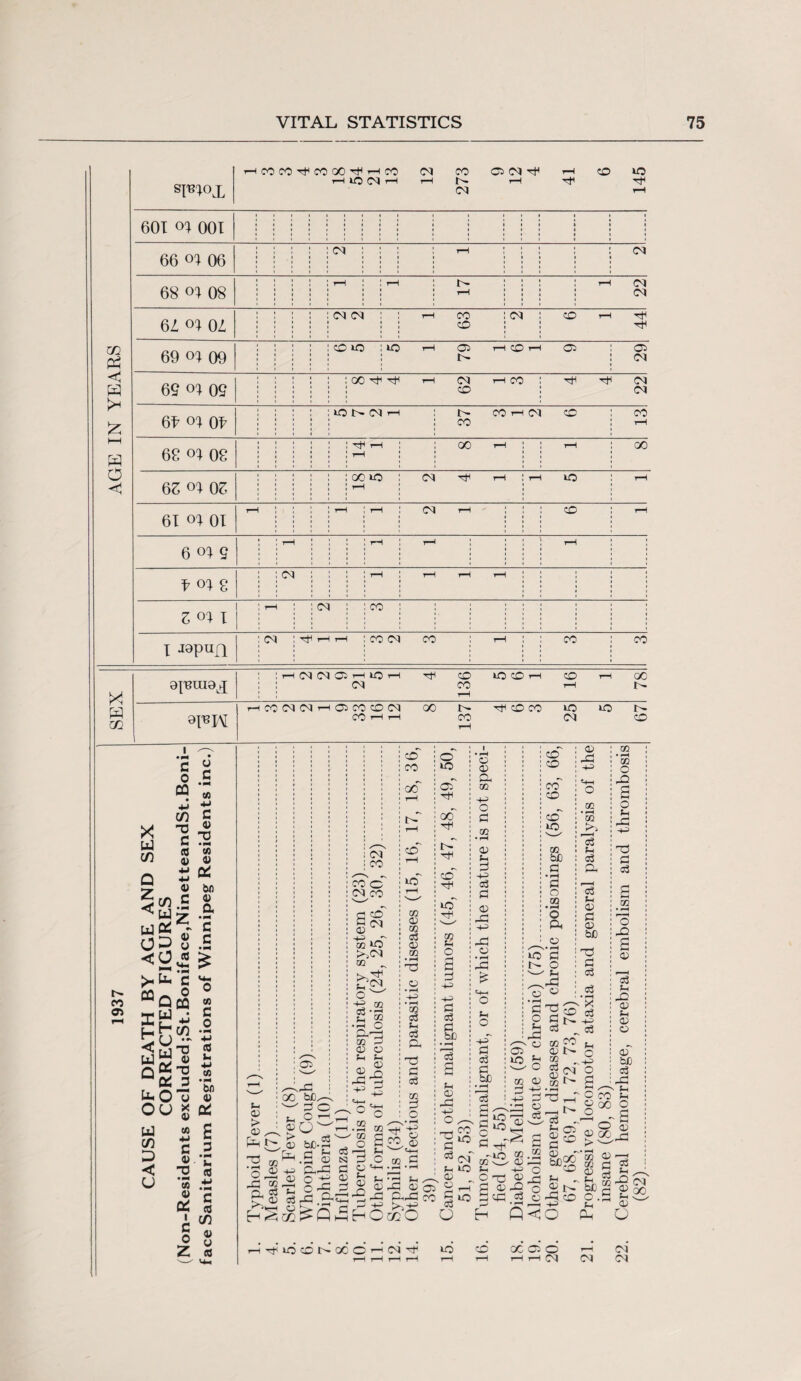 VITAL STATISTICS 75
1937
CAUSE OF DEATH BY AGE AND SEX
CORRECTED FIGURES
(Non-Residents excluded;St.Boniface,NinetteandSt.Boniface Sanitarium Registrations of Winnipeg Residents inc.)
SEX AGE IN YEARS
Male Female Under 1 1 to 2 3 to 4 5 to 9 10 to 19 20 to 29 30 to 39 40 to 49 50 to 59 60 to 69 70 to 79 80 to 89 90 to 99 100 to 109 Totals
1. Typhoid Fever (1) 1 1 1
4. Measles (7) 3 2 1 3
5. Scarlet Fever (8) 2 1 2 1 3
6. Whooping Cough (9) 2 2 4 4
7. Diphtheria (10) 1 2 1 2 3
8. Influenza (11) 9 9 1 1 5 6 2 1 2 18
10. Tuberculosis of the respiratory system (23) 33 21 18 14 7 8 5 2 54
11. Other forms of tuberculosis (24, 25, 26, 30, 32) 16 5 3 3 1 1 1 5 1 2 4 21
12. Syphilis (34) 12 1 2 1 4 5 1 13
14. Other infectious and parasitic diseases (15, 16, 17, 18, 36, 39) 8 4 3 1 1 2 2 1 1 1 12
15. Cancer and other malignant tumors (45, 46, 47, 48, 49, 50, 51, 52, 53) 137 136 1 1 4 8 37 62 79 63 17 1 273
16. Tumors, nonmalignant, or of which the nature is not specified (54, 55) 4 5 1 1 1 1 3 1 1 9
18. Diabetes Mellitus (59) 6 6 1 3 6 2 12
19. Alcoholism (acute or chronic) (75) 3 1 1 2 1 4
20. Other general diseases and chronic poisonings (56, 63, 66, 67, 68, 69, 71, 72, 73, 76) 25 16 3 1 6 5 1 6 4 9 6 41
21. Progressive locomotor ataxia and general paralysis of the insane (80, 83) 5 1 4 1 1 6
22. Cerebral hemorrhage, cerebral embolism and thrombosis (82) 67 78 3 1 1 8 13 22 29 44 22 2 145